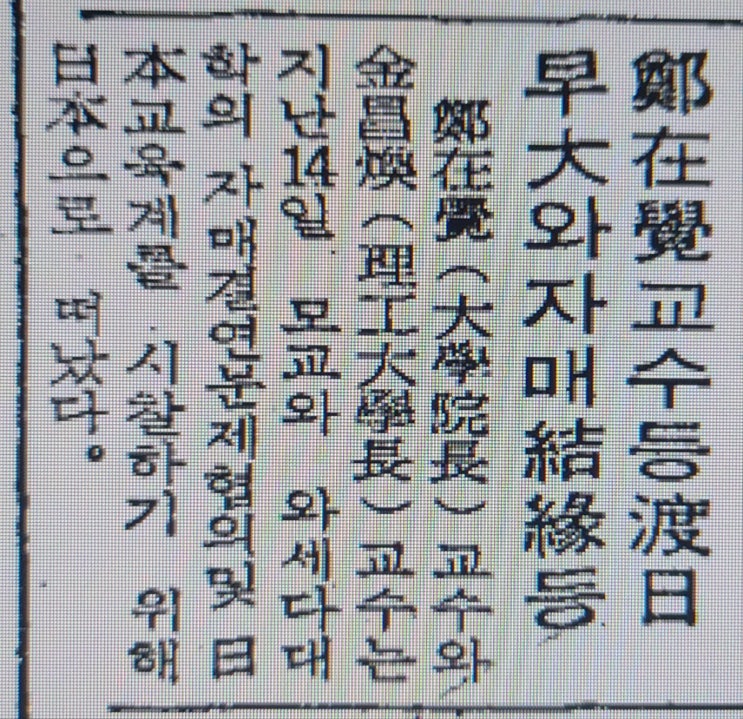 鄭在覺교수등渡日
早大와자매結緣등
鄭在覺(大學院長)교수와
金昌煥(理工大學長)교수는
지난14일 모교와 와세다대
학의 자매결연문제협의및 日
本교육계를 시찰하기 위해
日本으로 떠났다。